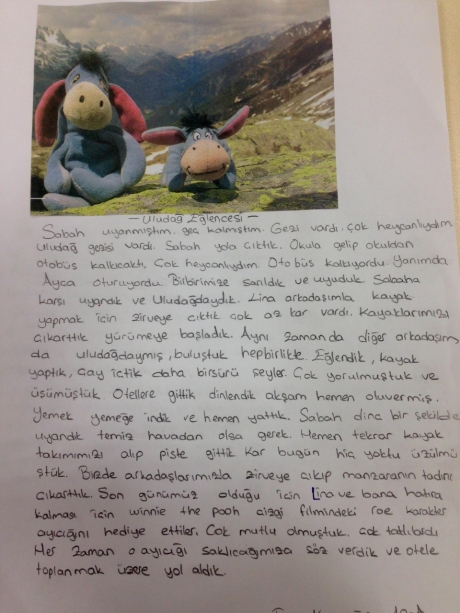 - Uludağ Eğlencesi -
Sabah uyanmıştım. geç kalmıştım. Gezi vardı. çok heycanlıydım
uludağ gezisi vardı. Sabah yola çıktık. Okula gelip okuldan
otobüs kalkıcaktı. Çok heycanlıydım. Otobüs kalkıyordu. Yanımda
Ayca oturuyordu. Birbirimize sarıldık ve uyuduk. Sabaha
karşı uyandık ve Uludağdaydık. Lina arkadaşımla kayak
yapmak için zirveye çıktık çok az kar vardı. Kayaklarımızı
çıkarttık yürümeye başladık. Aynı zamanda diğer arkadaşım
da uludağdaymış, buluştuk hepbirlikte. Eğlendik, kayak
yaptık, çay içtik daha birsürü şeyler. Çok yorulmuştuk ve
üşümüştük. Otellere gittik dinlendik akşam hemen oluvermiş.
Yemek yemeğe indik ve hemen yattık. Sabah dinç bir şekilde
uyandık temiz havadan olsa gerek. Hemen tekrar kayak
takımımızı alıp piste gittik kar bugün hiç yoktu üzülmü
ştük. Bizde arkadaşlarımızla zirveye çıkıp manzaranın tadını
çıkarttık. Son günümüz olduğu için Lina ve bana hatıra
kalması için winnie the pooh çizgi filmindeki roe karakter
ayıcığını hediye ettiler. Çok mutlu olmuştuk. çok tatlılardı
Her zaman o ayıcığı saklıcağımıza söz verdik ve otele
toplanmak üzere yol aldık.